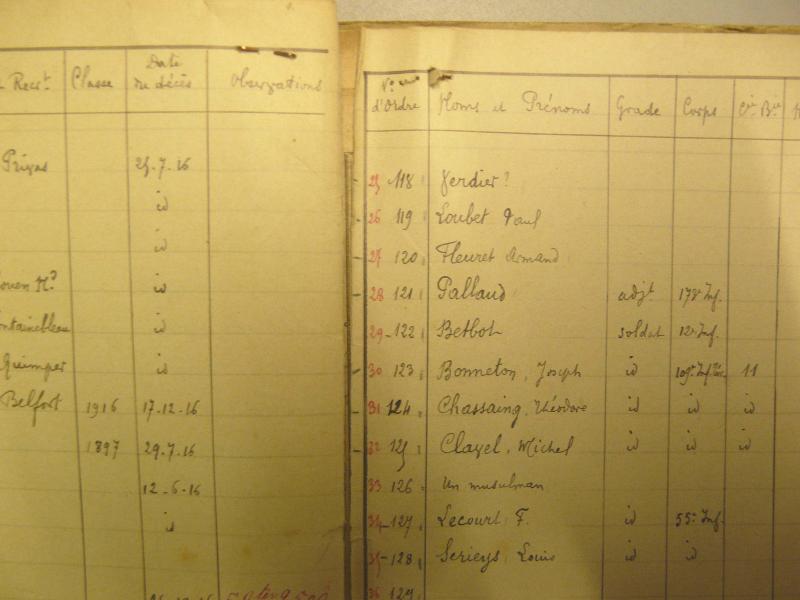 Recr.t Classe Date du décès Observations
Privas 25.7.16
id
id
ouen id
ontainebleau id
Quimper id
Belfort 1916 17-12-16
1897 29.7.16
12-6-16
id
N.o d'Ordre Noms et Prénoms Grade Corps Cie Bie
25 118 Verdier?
26 119 Loubet Paul
27 120 Fleuret Armand
28 121 Pallaud adj.t 178e Inf.
29 122 Betbot soldat 12e Inf.
30 123 Bonneton, Joseph id 109e Inf. 11
31 124 Chassaing, Théodore id id id
32 125 Clavel, Michel id id id
33 126 Un musulman
34 127 Lecourt, F. id 55e Inf.
35 128 Serieys, Louis id id
36 129